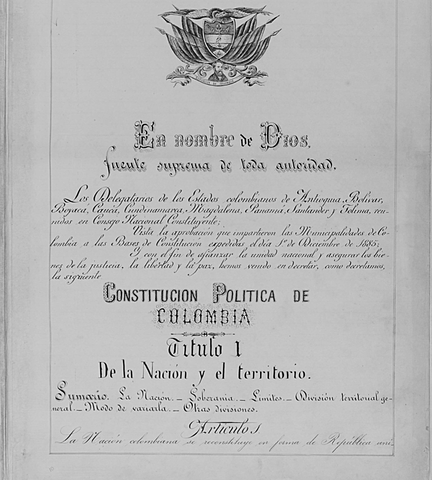 En nombre de Dios,
fuente suprema de toda autoridad.
Los Delegatarios de los Estados colombianos de Antioquia, Bolívar,
Boyacá, Cauca, Cundinamarca, Magdalena, Panamá, Santander y Tolima, reu-
nidos en Consejo Nacional Constituyente;
Vista la aprobación que impartieron las Municipalidades de Co-
lombia a las Bases de Constitución expedidas el día 1º de Diciembre de 1885;
Y con el fin de afianzar la unidad nacional y asegurar los bie-
nes de la justicia, la libertad y la paz, hemos venido en decretar, como decretamos,
la siguiente
CONSTITUCION POLITICA DE
COLOMBIA
Titulo I
De la Nación y el territorio.
Sumario. La Nación._ Soberanía._ Límites._ División territorial ge-
neral._ Modo de variarla._ Otras divisiones.
Artículo 1
La Nación colombiana se reconstituye en forma de República uni-